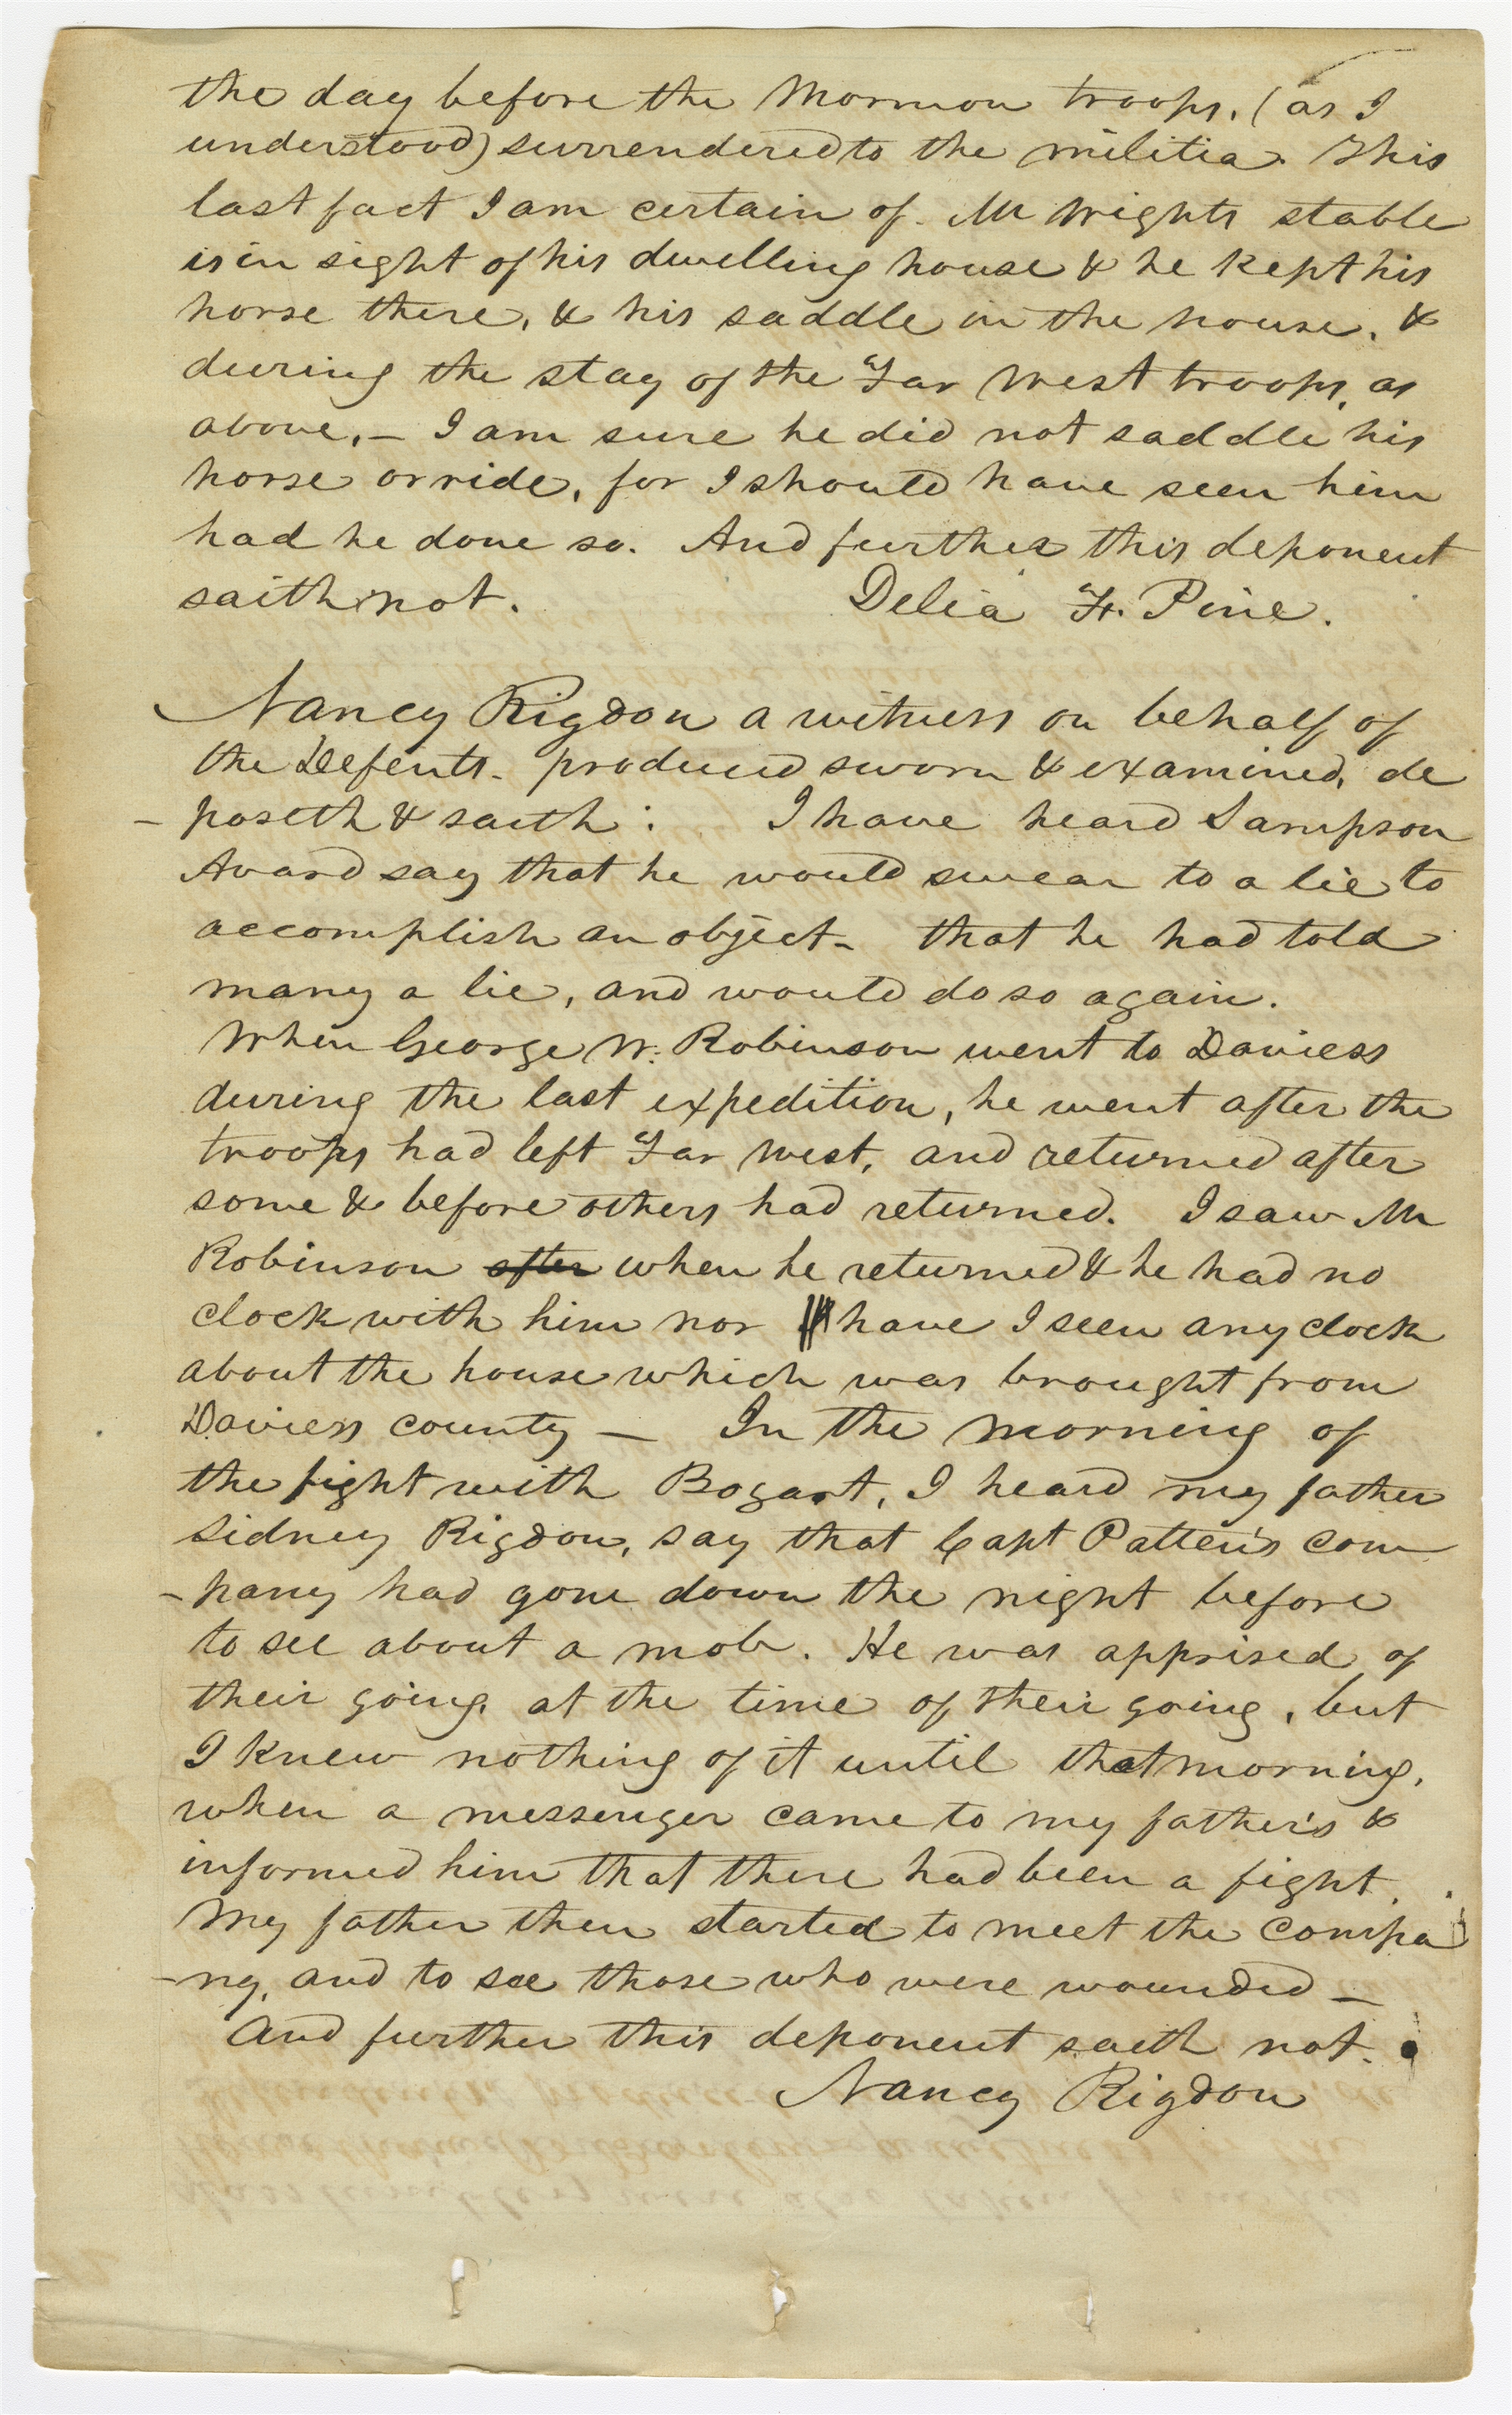 the day before the Mormon troops, (as I
understood) surrendered to the militia. This
last fact I am certain of. Mr Wrights stable
is in sight of his dwelling house & he kept his
horse there, & his saddle in the house, &
during the stay of the Far West troops, as
above, – I am sure he did not saddle his
horse or ride, for I should have seen him
had he done so. And further this deponent
saith not.
Delia F. Pine.
Nancy Rigdon a witness on behalf of
the Defents. produced sworn & examined, de
-poseth & saith: I have heard Sampson
Avard say that he would swear to a lie to
accomplish an object– that he had told
many a lie, and would do so again.
When George W. Robinson went to Daviess
during the last expedition, he went after the
troops had left Far West, and returned after
some & before others had returned. I saw Mr
Robinson after when he returned & he had no
clock with him nor have I seen any clock
about the house which was brought from
Daviess county – In the morning of
the fight with Bogart, I heard my father
Sidney Rigdon, say that Capt Patten's com
-pany had gone down the night before
to see about a mob. He was apprised of
their going, at the time of their going, but
I knew nothing of it until that morning,
when a messenger came to my father's &
informed him that there had been a fight.
My father then started to meet the compa
-ny, and to see those who were wounded –
And further this deponent saith not.
Nancy Rigdon